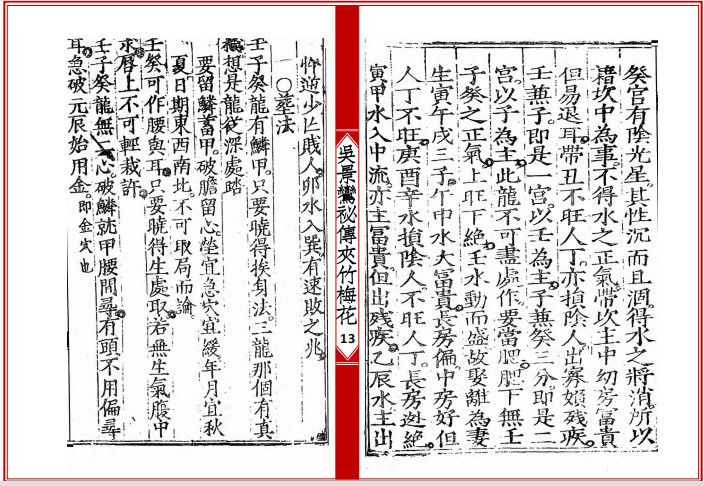 癸宫有陰光星其性沉而且涸得水之將消所以
藉坎中為事不得水之正氣帶坎主中幼房富貴
但易退耳帶丑不旺人丁亦損陰人出寡婦残疾
壬兼子即是一宫以壬為主子兼癸三分即是二
宫以子為主此龍不可盡處作要當腮腮下無壬
子癸之正氣上旺下絕壬水動而盛故娶離為妻
生寅午戌三子午中水大富貴長房偏中房好但
人丁不旺庚酉辛水損陰人不旺人丁長房迯絕
寅甲水入中流亦主冨貴但出残疾乙辰水主出
吳景鸞祕傳夾竹梅花
13
忤逆少亡賊人卯水入巽有速敗之兆
○葬法
壬子癸龍有鱗甲只要曉得挨身法三龍那個有真
機想是龍從深處踏
要留鱗蓄甲破膽留心墊宜急穴宜緩年月宜秋
夏日期東西南北不可取局而論
壬癸可作腰與耳只要曉得生處取若無生氣腹中
求唇上不可輕裁許
壬子癸龍無一心破鱗就甲腰間尋有頭不用偏尋
耳急破元辰始用金即金穴也